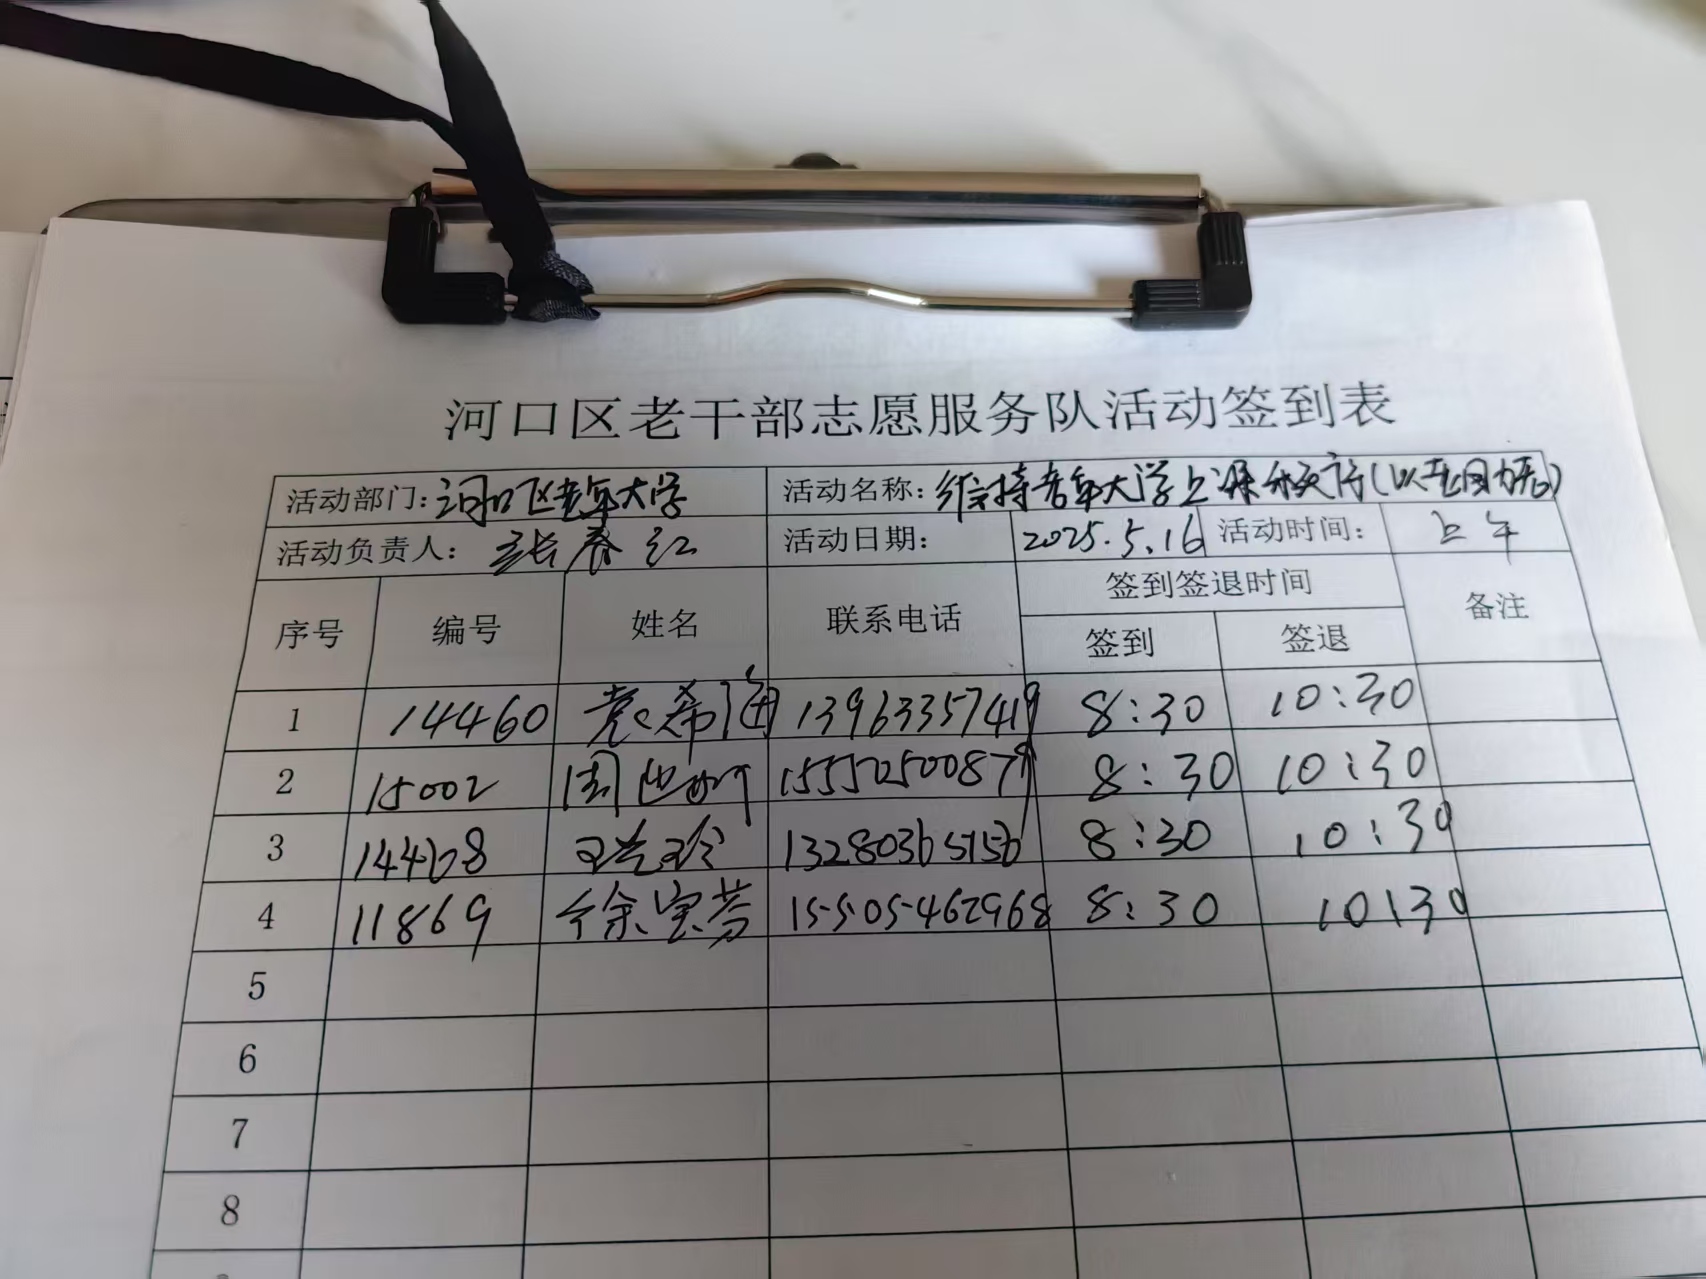 河口区老干部志愿服务队活动签到表
活动部门: 河口区老年大学 活动名称: 维持老年大学上课秩序
活动负责人: 张春江 活动日期: 2025.5.16 活动时间: 上午
序号 编号 姓名 联系电话 签到签退时间 备注
签到 签退
1 14460 袁希海 13963357419 8:30 10:30
2 15002 周 15552500879 8:30 10:30
3 14468 王兰珍 13280365156 8:30 10:30
4 11869 徐宝芬 15505462968 8:30 10:30
5
6
7
8